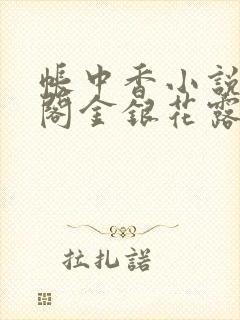 帳中香小説
閣金銀花露
拉扎諾